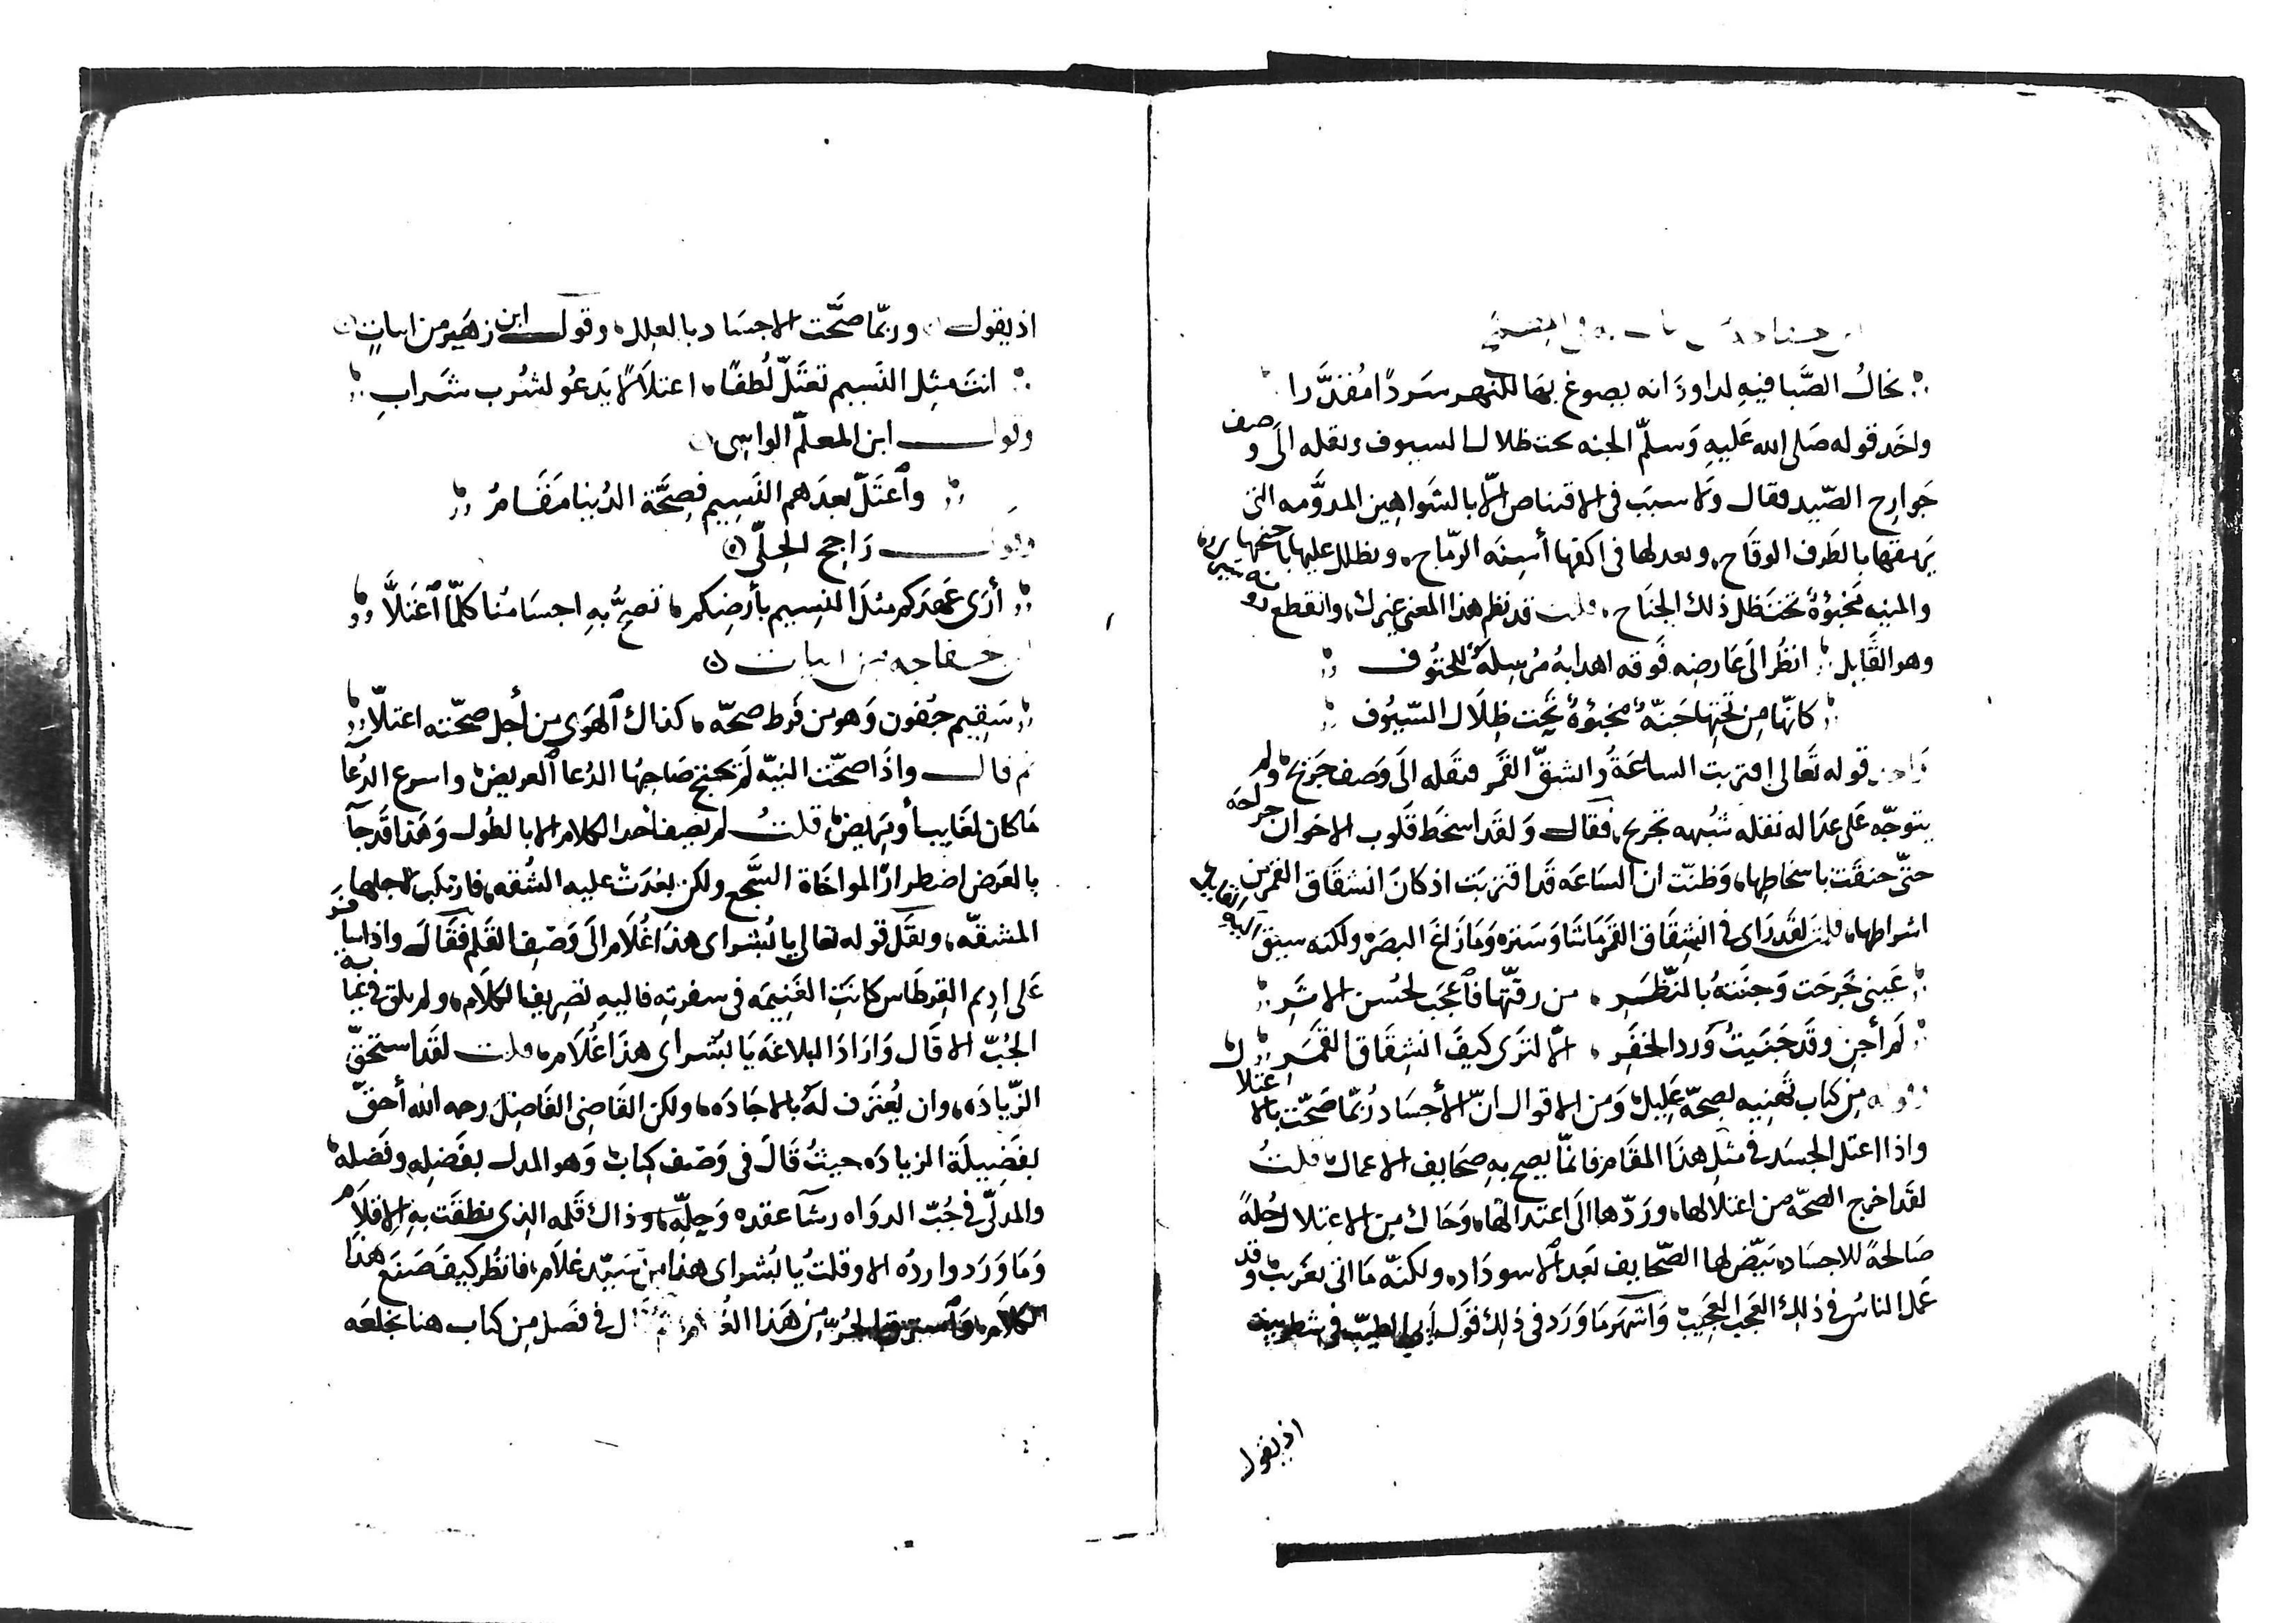 يخالُ الصَّبا فيهِ لداودَ انه يصوغ بها للنهر سَردًا مُقدَّرا
واخَد قوله صَلى الله عَليهِ وَسلمّ الجنه تحت ظلال السيوف ونقله الَى وصف
جَوارِح الصّيد فقال وَلا سببَ فى الاقتناص الّا بالشَواهِين المدوَّمه التى
بالطَرف الوقَاح، وبعد لها فى اكفها أسِنَه الرّمَاح، ويظلل عليها باجنحتها
والمنيه مَخبُوَةٌ تحتَ ظل ذلك الجنَاح، قلت قد نظم هذا المعنى غيرك، وانقطع دونه
وهو القَايل انظُر الَى عَارِضِه فَوقه اهدابهُ مُرسِلةً للحتُوف
كانهّا مِن تحتِها جَنّةٌ مخبُؤةٌ تَحِت ظِلَال السّيُوف
قوله تَعالى اقتربت الساعَةُ وانشقّ القَمر فنقله الَى وَصف جَرح، ولم
يتوجّه عَلى عَدَاله نقله شبُهه تجريح، فقال وَلقَد اسخَط قلوب الاخوان جراحَه
حتّى حنقَت باسخاطِها، وَظنّت ان السَاعَه قَد اقتربَت اذ كانَ انشقَاق القمَر من
اشراطها، قلت لقَد رَاى فى انشِقَاق القَمر مَا شَا وَسَتره وَمَا زَاغَ البصَر، ولكنه سبق
عَينى جَرحَت وَجنَتهُ بالنّظَرِ ، من رقتّها فأعجَب لحُسن الاثَرِ
لَم أجنِ وقَد جَنَيتُ وَرد الخفَرِ ، الّا لترَى كيفَ انشِقَاق القمَرِ
مِن كتاب تَهنِيه بصِحّة عَلِيل، وَمن الاقوال انّ الأجسَاد رُبمّا صَحّت بالاعتلال
واذا اعتل الجسَد فى مثل هذَا المقَام فانمّا يصِح بهِ صحَايف الاعمال، قلتُ
لقَد اخرج الصحّه من اعتلالها، ورَدّها الَى اعتدالهَا، وَحَاك مِن الاعِتلال حُلةً
صَالحةً للاجسَاد، بَيّضَ لها الصّحَايف بَعد الاسودَاد، ولكنّه مَا اتى بغَريب، وقد
عَمل الناسُ فى ذلِك العَجب العَجِيب، وَاشهَر مَا وَرَد فى ذلِك قَول أبى الطيّب فى شطر بيت
اذ يقول
اذ يقول وربمّا صَحَّت الاجسَاد بالعِلل، وقول ابن زهَير من ابياتٍ
انتَ مثِل النَسيم تَعتَلّ لُطفًا، اعتلاَلًا يَدعُو لشُرب شَرابِ
وقول ابن المعلّم الواسِطى
وأعتَلّ بعدَهم النَسِيم فصِحَّة الدُنيا سَقَامُ
وقول رَاجح الحِلىّ
أرَى عَهدَكم مثلَ النسِيم بأرضِكم، تصِحُّ بهِ اجسَامُنا كلمّا أعتَلاَّ
ابن خفاجه من ابيات
سَقِيم جُفون وَهو من فَرط صحّه، كذاك الهوَى من أجل صحّته اعتلّا
ثم قال واذَا صحّت النيّه لَم يحتج صَاحِبُها الدُعا العريض، واسرع الدُعا
مَا كان لغَايب أو مَريض، قلتُ لم يَصِف أحدا الكلام الا بالطُول وَهذا قَد جآ
بالعَرض اضطرارًا لمواخَاة السَّجع ولكن بعُدَت عليه الشُقه، فارتكب لاجلها
المشقّه، ونقَل قوله تعالى يا بُشراى هذَا غُلَام الَى وَصَف القلَم فقَالَ واذا سَافر
عَلى ادِيم القِرطَاس كانَتِ الغَنِيمَه فى سفرتِه فاليهِ تصَريف الكلاَم، ولم يلق فى غيَابة
الجُبّ الا قَال وَارِدَ البلاغَه يَا بُشراى هذَا غُلَام، قلت لقَد استحَقّ
الزّيادَه، وان يُعتَرف لهُ بالاجَادَه، ولكن القَاضى الفَاضِل رحمه الله أحقّ
بفَضِيلَة الزيادَه حيثُ قَالَ فى وَصَف كِتاب، وَهو المدل بفَضلِه وفَضله
والمدلّى فى جُبّ الدوَاه رشآ عقده وَحِلّه، وذاك قلمه الذى نطقَت بهِ الاقلاَم
وَمَا وَرَد واردُه الا وقلتُ يا بُشراى هذا مِن سَيّد غلَام، فانظُر كيفَ صَنَع هذَا
الكلام، وَاسترق الحُرّ مِن هَذا الغُلام، ثم قال فى فَصل مِن كتاب هنا بخلعَه